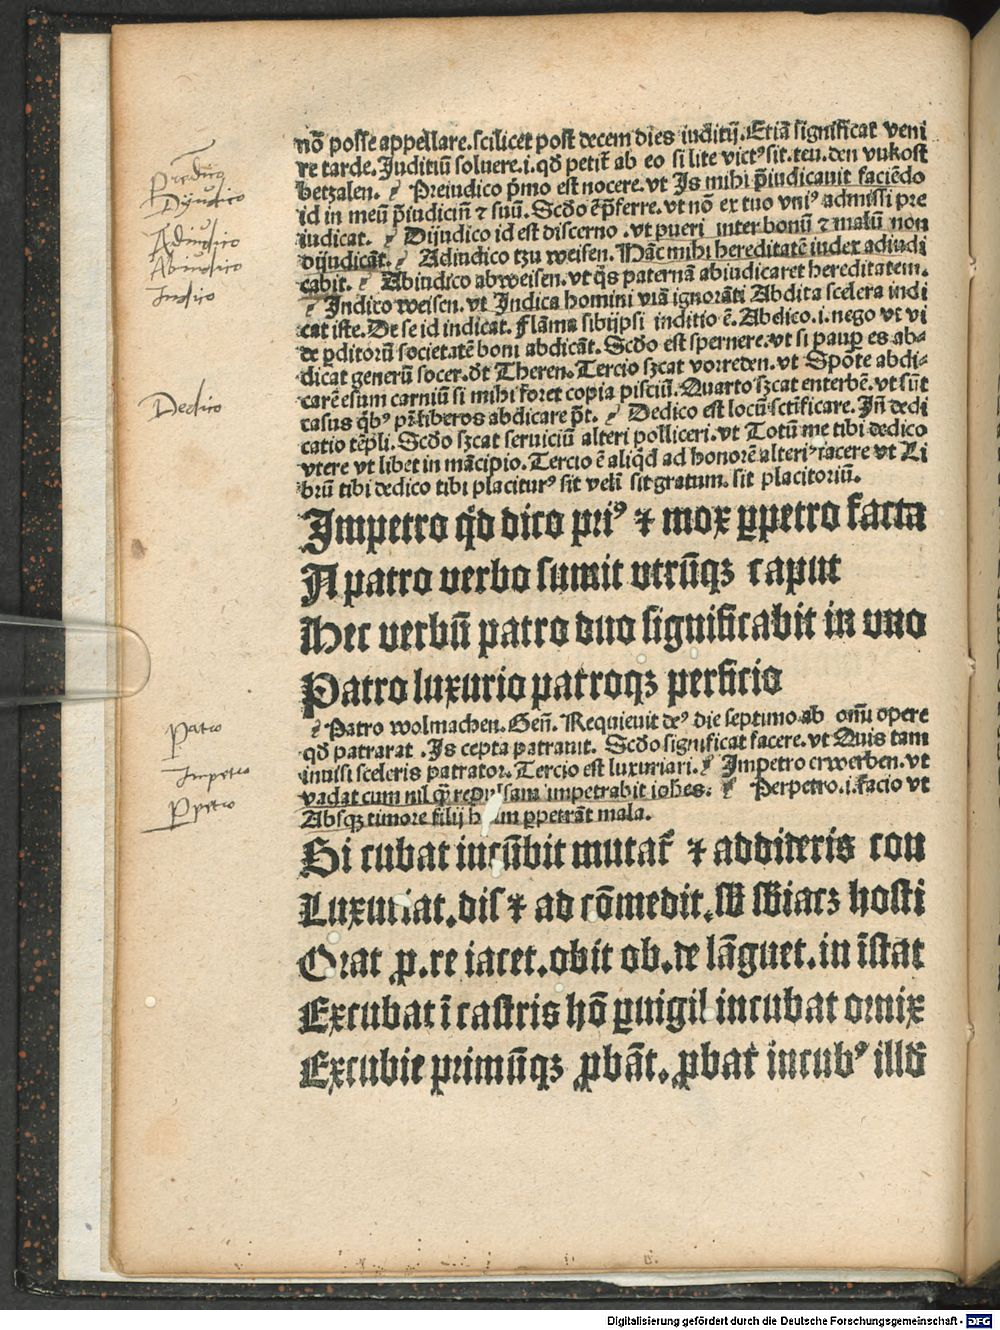 nō posse appellare.scilicet post decem dies iuditij.Etiā significat veni
re tarde.Juditiū soluere.i.qđ petit᷑ ab eo si lite victꝰ sit.teu.den vnkost
betzalen. Preiudico p̄mo est nocere.vt Js mihi p̄iudicauit faciēdo
id in meū p̄iudiciū ⁊ suū. Scđo ē p̄ferre.vt nō ex tuo vniꝰ admissi pre
iudicat. Dijudico id est discerno .vt pueri inter bonū ⁊ malū non
dijudicāt. Adiudico tzu weisen. Hāc mihi hereditatē iudex adiudi
cabit. Abiudico abweisen.vt q̄s paternā abiudicaret hereditatem.
Indico weisen.vt Indica homini viā ignorāti Abdita scelera indi
cat iste.De se id indicat. Flāma sibijpsi inditio ē. Abdico.i.nego vt vi
de ꝑditorū societatē boni abdicāt. Scđo est spernere.vt si pauꝑ es ab⸗
dicat generū socer.đt Theren.Tercio sꝫcat vorreden.vt Spōte abdi⸗
carē esum carniū si mihi foret copia pisciū.Quarto sꝫcat enterbē.vt sūt
casus q̄bꝰ pr̄ liberos abdicare pt̄. Dedico est locū sctificare.Jn̄ dedi
catio tēpli.Scđo sꝫcat seruiciū alteri polliceri.vt Totū me tibi dedico
vtere vt libet in mācipio.Tercio ē aliqđ ad honorē alteriꝰ facere vt Li
brū tibi dedico tibi placiturꝰ sit velī sit gratum.sit placitoriū.
Impetro qđ dico priꝰ ⁊ mox ꝑpetro facta
A patro verbo sumit vtrūqꝫ caput
Hec verbū patro duo significabit in vno
Patro luxurio patroqꝫ perficio
Patro wolmachen. Geñ. Requieuit deꝰ die septimo ab omī opere
qđ patrarat .Js cepta patrauit. Scđo significat facere.vt Quis tam
inuisi sceleris patrator.Tercio est luxuriari. Impetro erwerben.vt
vadat cum nil q̄ repulsam impetrabit iohes. Perpetro.i.facio vt
Absqꝫ timore filij ꝑpetrāt mala.
Si cubat incūbit mutat᷑ ⁊ addideris con
Luxuriat.dis ⁊ ad cōmedit.sub hosti
Orat ꝓ.re iacet.obit ob.de lāguet.in īstat
Excubat ī castris hō ꝑuigil incubat ornix
Excubie primūqꝫ ꝓbāt.ꝓbat incubꝰ illđ
Preiudico
Dijudico
Adiudico
Abiudico
Indico
Dedico
Patro
Impetro
Ppetro
Digitalisierung gefördert durch die Deutsche Forschungsgemeinschaft - DFG